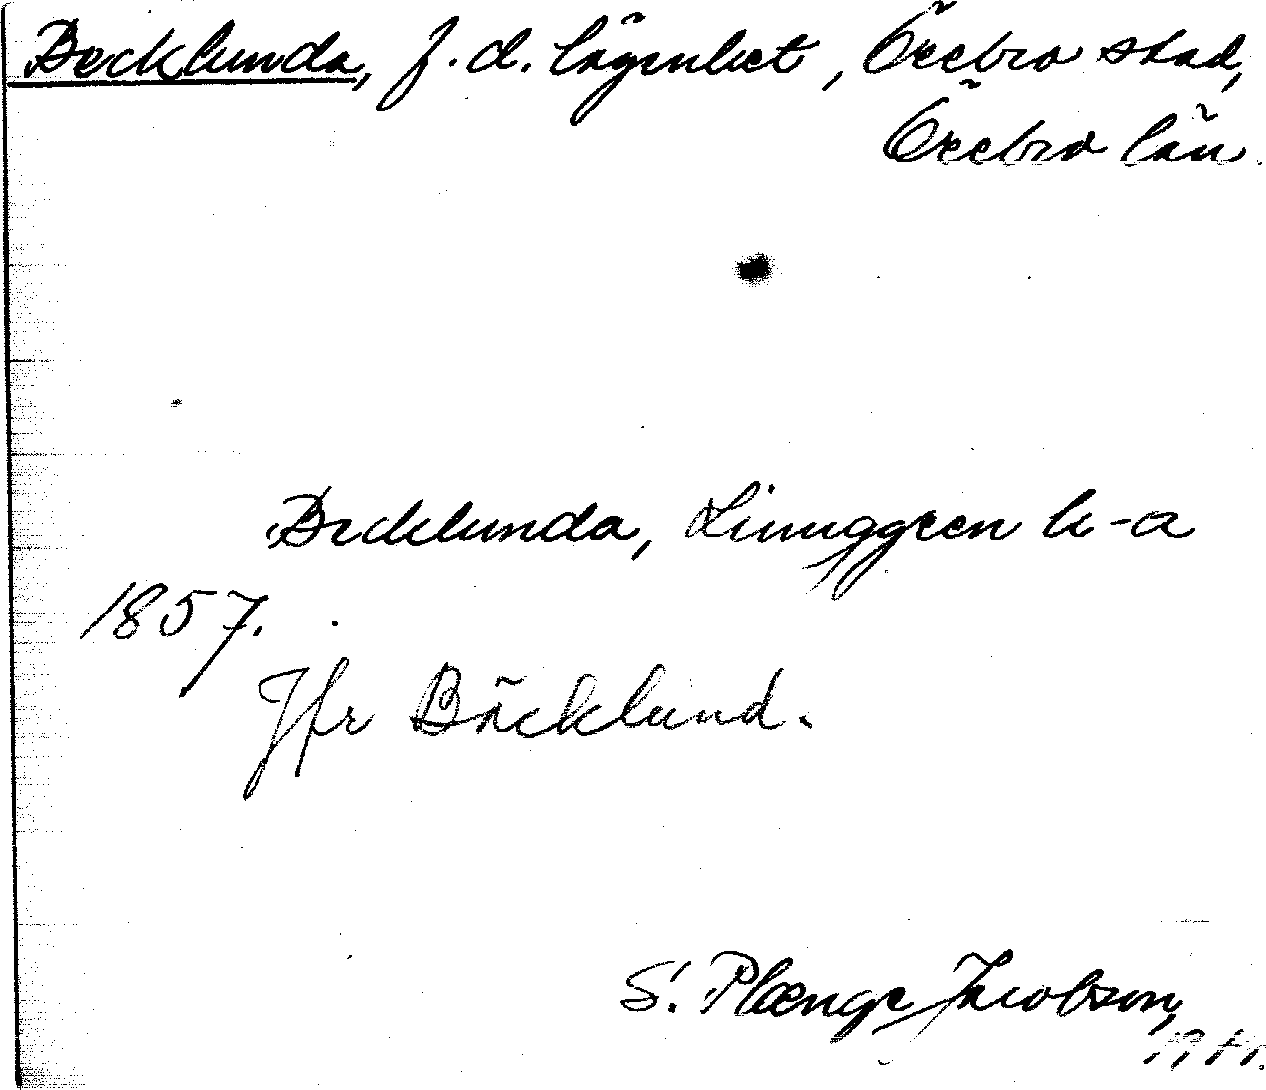 Becklunda, f. d. lägenhet, Örebro stad,
Örebro län.
Becklunda, Linnggren k-a
1857.
Jfr Bäcklund.
S. Plænge Jacobson,